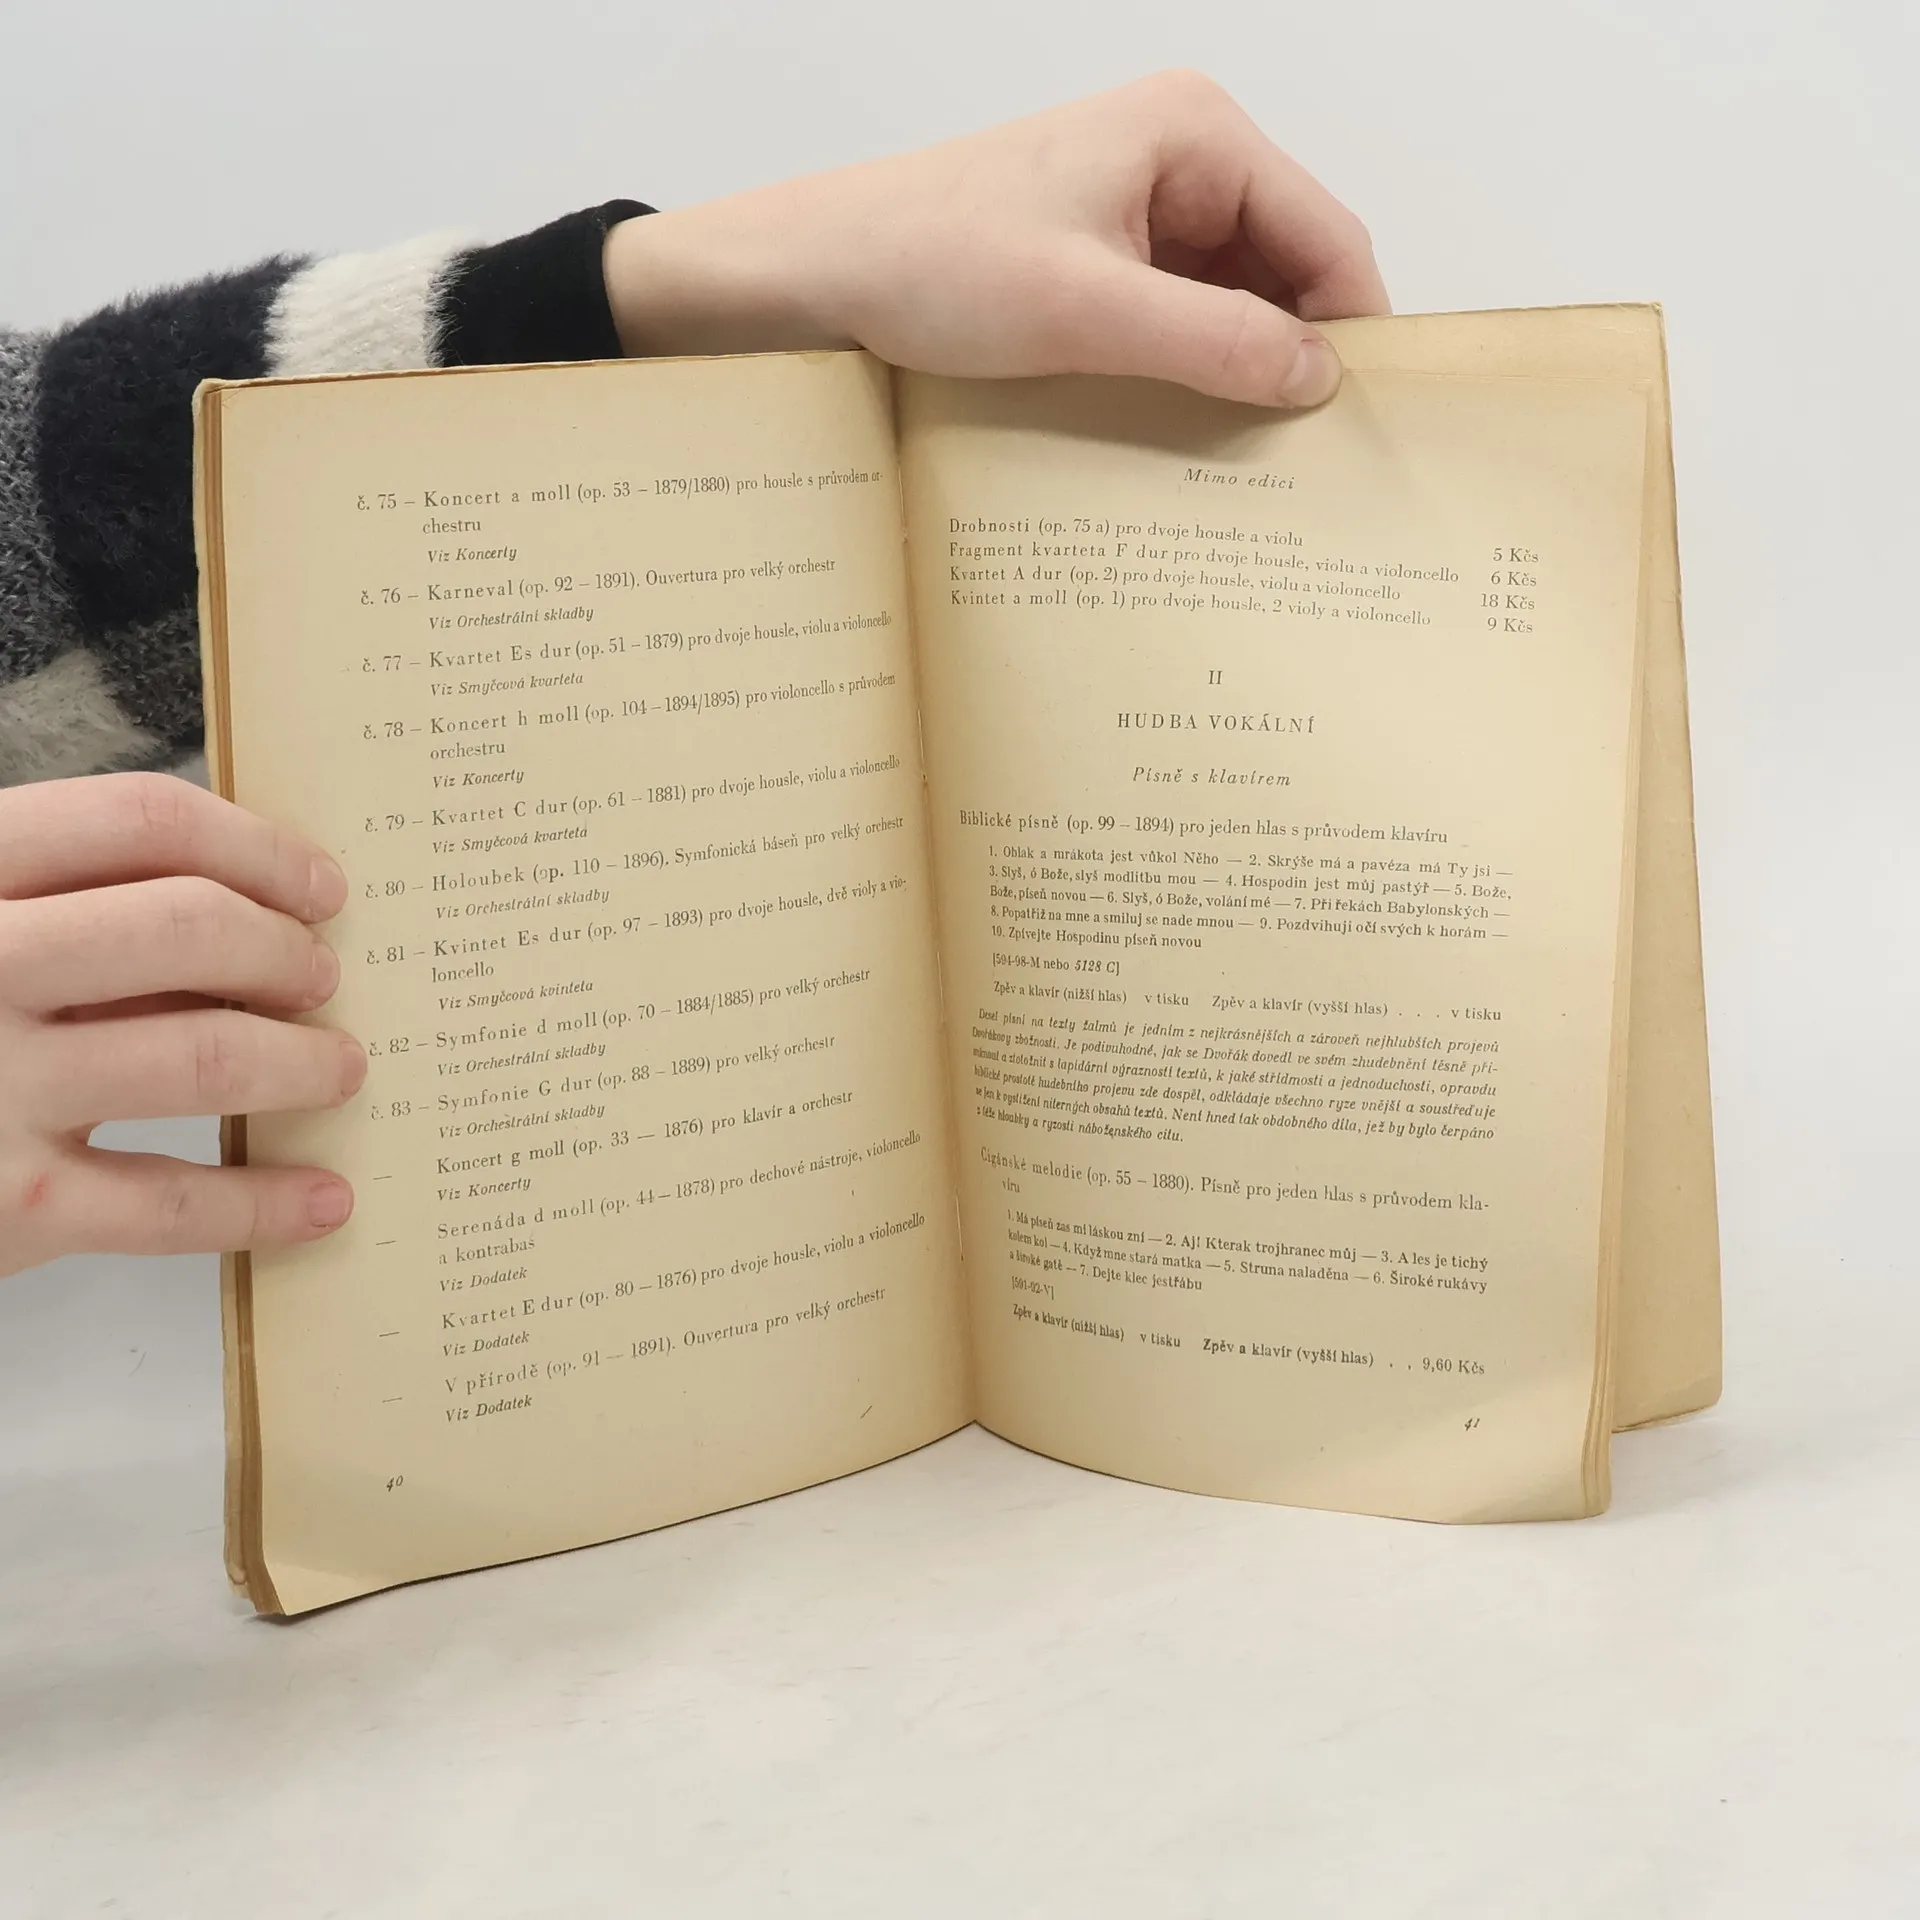 č. 75 – Koncert a moll (op. 53 – 1879/1880) pro housle s průvodem or-
chestru
Viz Koncerty
č. 76 – Karneval (op. 92 – 1891). Ouvertura pro velký orchestr
Viz Orchestrální skladby
č. 77 – Kvartet Es dur (op. 51 – 1879) pro dvoje housle, violu a violoncello
Viz Smyčcová kvarteta
č. 78 – Koncert h moll (op. 104 – 1894/1895) pro violoncello s průvodem
orchestru
Viz Koncerty
č. 79 – Kvartet C dur (op. 61 – 1881) pro dvoje housle, violu a violoncello
Viz Smyčcová kvarteta
č. 80 – Holoubek (op. 110 – 1896). Symfonická báseň pro velký orchestr
Viz Orchestrální skladby
č. 81 – Kvintet Es dur (op. 97 – 1893) pro dvoje housle, dvě violy a vio-
loncello
Viz Smyčcová kvinteta
č. 82 – Symfonie d moll (op. 70 – 1884/1885) pro velký orchestr
Viz Orchestrální skladby
č. 83 – Symfonie G dur (op. 88 – 1889) pro velký orchestr
Viz Orchestrální skladby
— Koncert g moll (op. 33 — 1876) pro klavír a orchestr
Viz Koncerty
— Serenáda d moll (op. 44 – 1878) pro dechové nástroje, violoncello
a kontrabas
Viz Dodatek
— Kvartet E dur (op. 80 – 1876) pro dvoje housle, violu a violoncello
Viz Dodatek
— V přírodě (op. 91 — 1891). Ouvertura pro velký orchestr
Viz Dodatek
40
Mimo edici
Drobnosti (op. 75 a) pro dvoje housle a violu 5 Kčs
Fragment kvarteta F dur pro dvoje housle, violu a violoncello 6 Kčs
Kvartet A dur (op. 2) pro dvoje housle, violu a violoncello 18 Kčs
Kvintet a moll (op. 1) pro dvoje housle, 2 violy a violoncello 9 Kčs
II
HUDBA VOKÁLNÍ
Písně s klavírem
Biblické písně (op. 99 – 1894) pro jeden hlas s průvodem klavíru
1. Oblak a mrákota jest vůkol Něho — 2. Skrýše má a pavéza má Ty jsi —
3. Slyš, ó Bože, slyš modlitbu mou — 4. Hospodin jest můj pastýř — 5. Bože,
Bože, píseň novou — 6. Slyš, ó Bože, volání mé — 7. Při řekách Babylonských —
8. Popatřiž na mne a smiluj se nade mnou — 9. Pozdvihuji očí svých k horám —
10. Zpívejte Hospodinu píseň novou
[594-98-M nebo 5128 C]
Zpěv a klavír (nižší hlas) v tisku Zpěv a klavír (vyšší hlas) . . . v tisku
Deset písní na texty žalmů je jedním z nejkrásnějších a zároveň nejhlubších projevů
Dvořákovy zbožnosti. Je podivuhodné, jak se Dvořák dovedl ve svém zhudebnění těsně při-
mknout a ztotožnit s lapidární výrazností textů, k jaké střídmosti a jednoduchosti, opravdu
biblické prostotě hudebního projevu zde dospěl, odkládaje všechno ryze vnější a soustřeďuje
se jen k vystižení niterných obsahů textů. Není hned tak obdobného díla, jež by bylo čerpáno
z téže hloubky a ryzosti náboženského citu.
Cigánské melodie (op. 55 – 1880). Písně pro jeden hlas s průvodem kla-
víru
1. Má píseň zas mi láskou zní — 2. Aj! Kterak trojhranec můj — 3. A les je tichý
kolem kol — 4. Když mne stará matka — 5. Struna naladěna — 6. Široké rukávy
a široké gatě — 7. Dejte klec jestřábu
[591-92-V]
Zpěv a klavír (nižší hlas) v tisku Zpěv a klavír (vyšší hlas) . . 9,60 Kčs
41